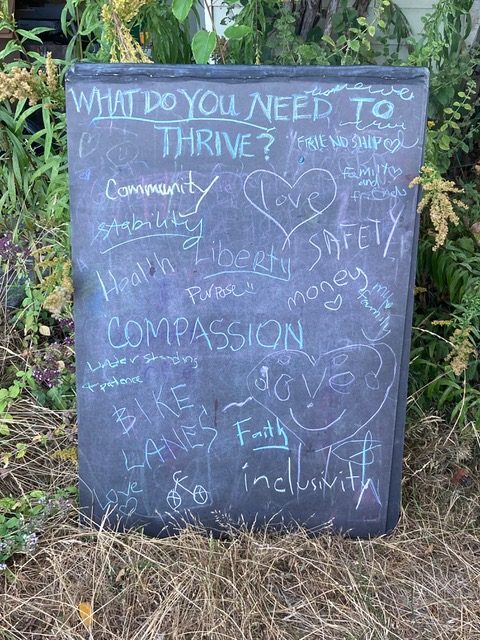 WHAT DO YOU NEED TO
THRIVE?
FRIENDSHIP
Community
love
family
and
friends
stability
SAFETY
Health
Liberty
Purpose
money
my
family
COMPASSION
understanding
+ patience
love
BIKE
LANES
Faith
Love
inclusivity